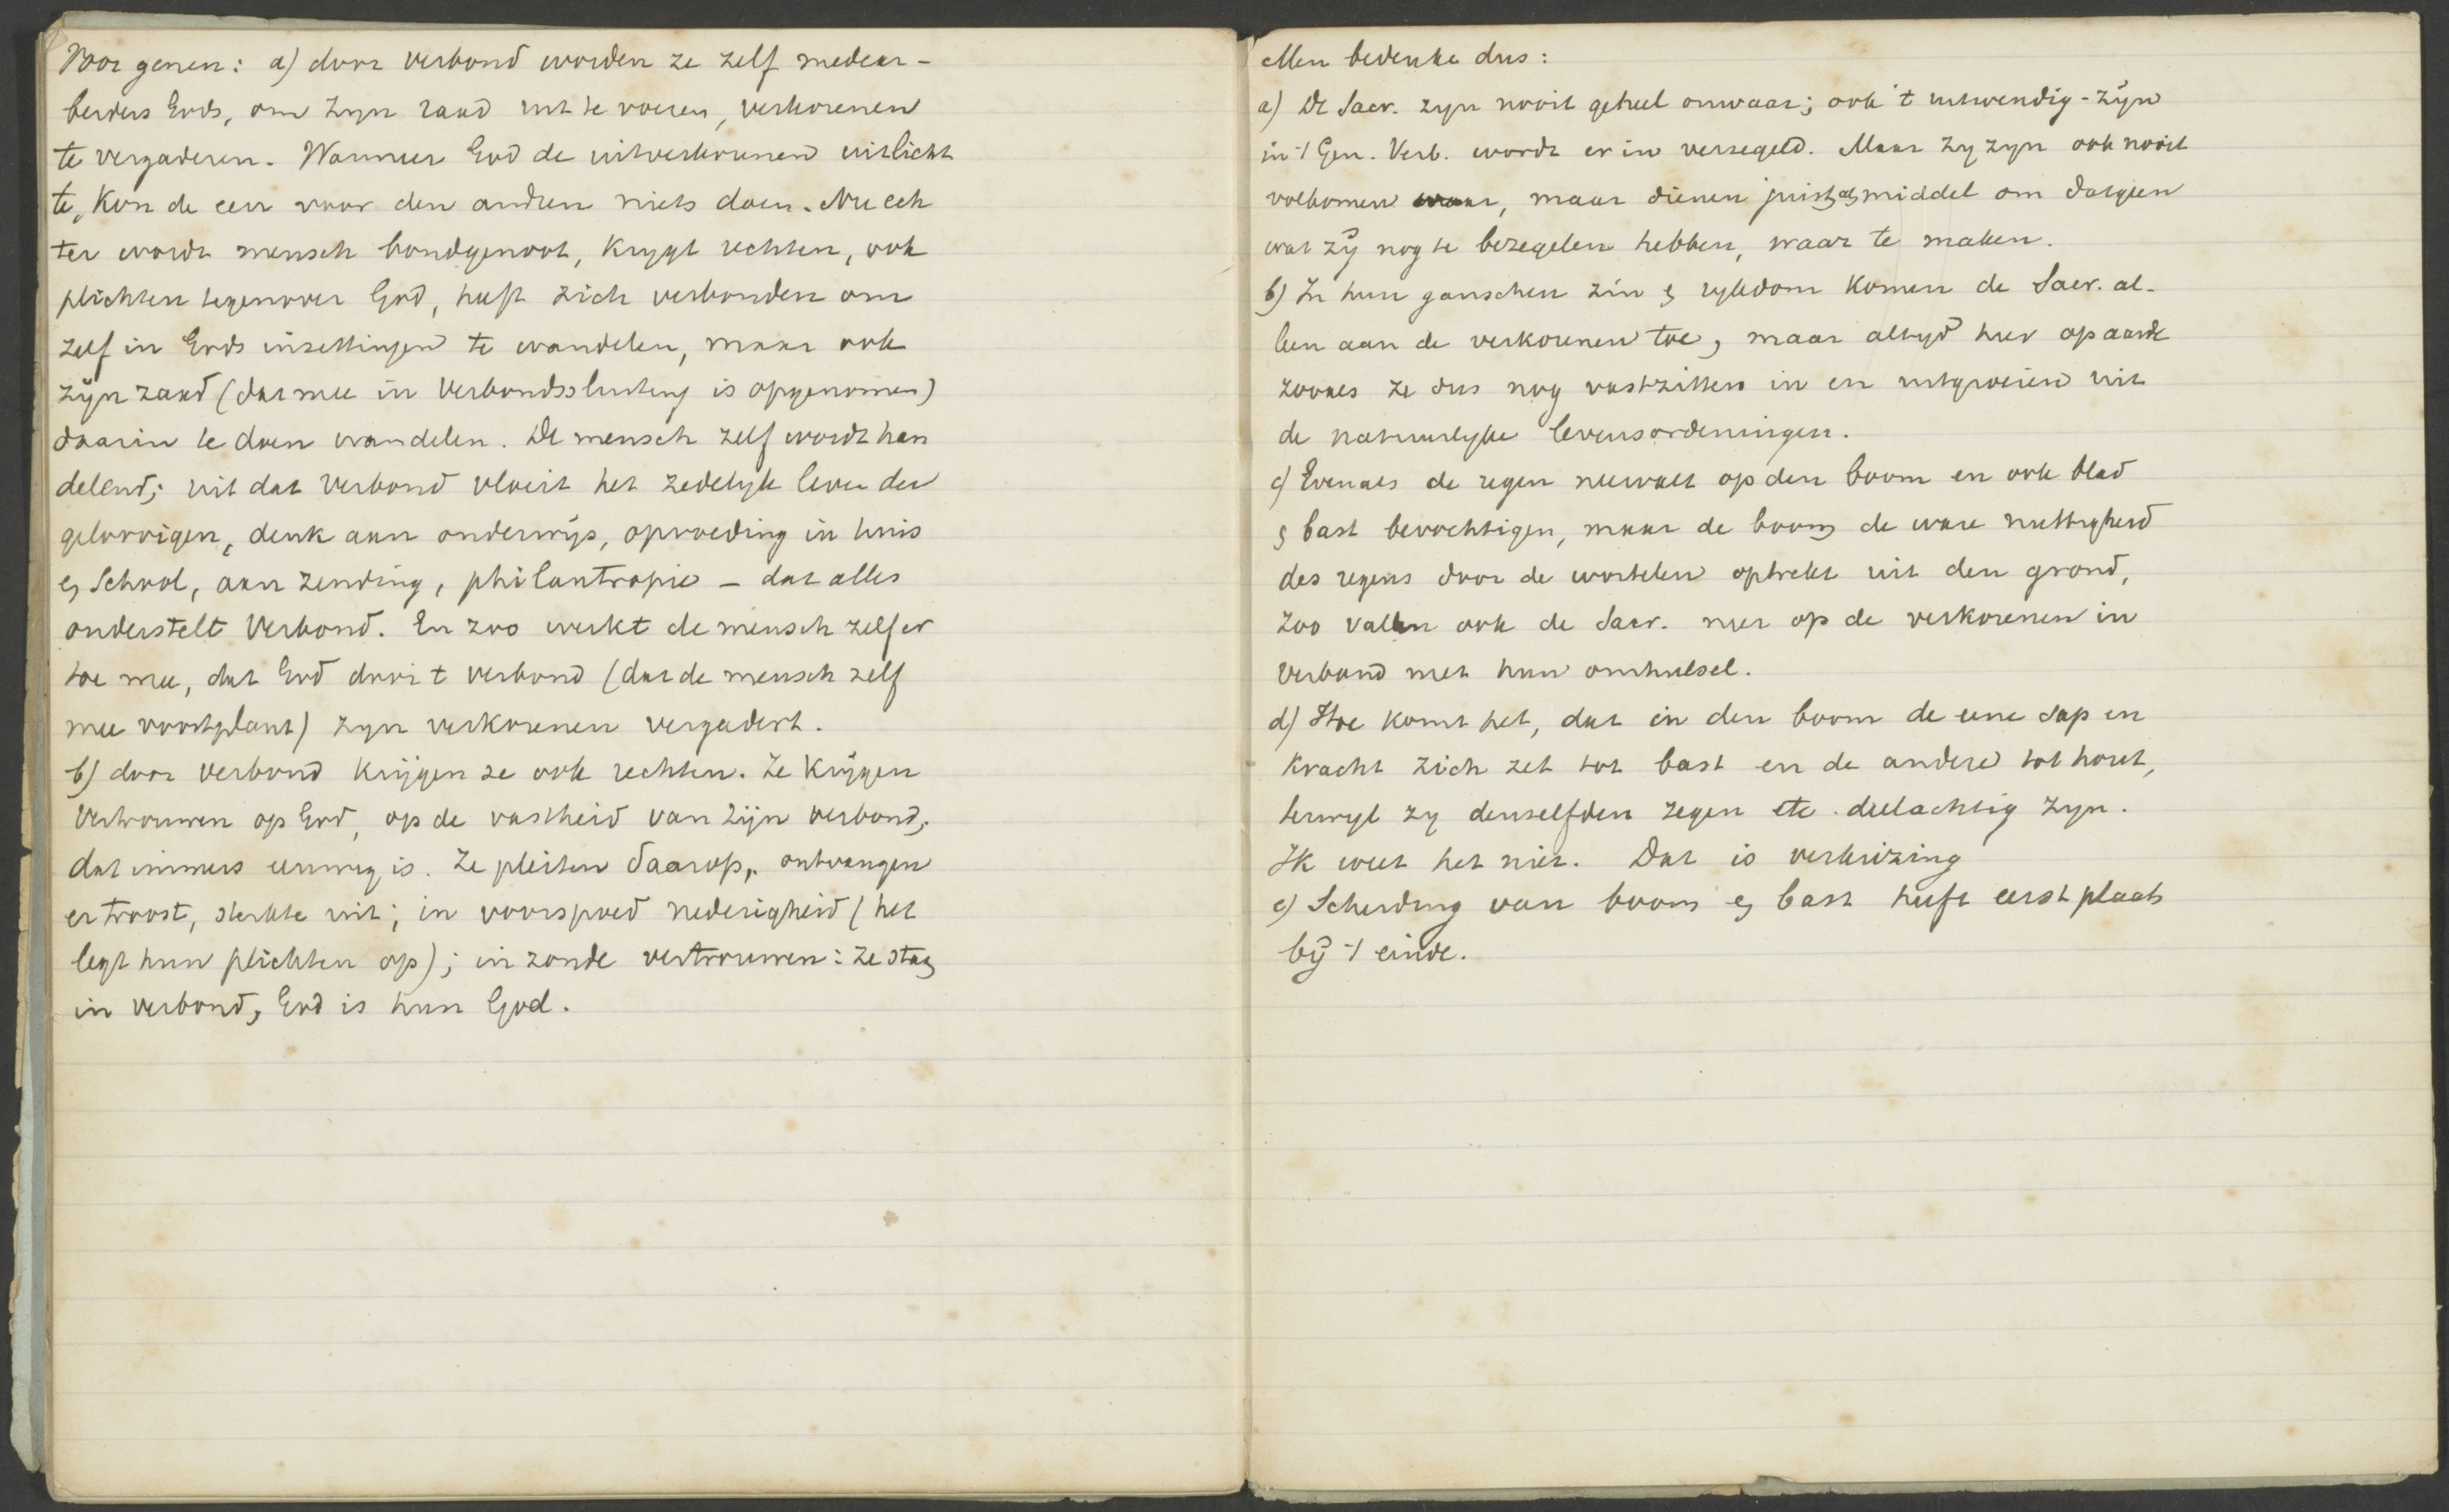 Voor genen: a) door verbond worden ze zelf medear-
beiders Gods, om zyn raad uit te voeren, verkorenen
te vergaderen. Wanneer God de uitverkorenen uitlicht
te, kon de een voor den andren niets doen. Nu ech
ter wordt mensch bondgenoot, krygt rechten, ook
plichten tegenover God, heeft zich verbonden om
zelf in Gods inzettingen te wandelen, maar ook
zijn zaad (dat mee in Verbondssluiting is opgenomen)
daarin te doen wandelen. De mensch zelf wordt han
delend; uit dat Verbond vloeit het zedelyk leven der
geloovigen, denk aan onderwijs, opvoeding in huis
& School, aan zending, philantropie - dat alles
onderstelt Verbond. En zoo werkt de mensch zelf er
toe mee, dat God door 't verbond (dat de mensch zelf
mee voortplant) zyn verkorenen vergadert.
b) door verbond krijgen ze ook rechten. Ze krijgen
Vertrouwen op God, op de vastheid van Zijn verbond,
dat immers eeuwig is. Ze pleiten daarop, ontvangen
er troost, sterkte uit; in voorspoed nederigheid (het
legt hun plichten op); in zonde vertrouwen: ze staan
in verbond, God is hun God.
Men bedenke dus:
a) De Sacr. zyn nooit geheel onwaar; ook 't uitwendig-zijn
in 't Gen. Verb. wordt er in verzegeld. Maar zy zyn ook nooit
volkomen waar, maar dienen juist als middel om datgeen
wat zij nog te bezegelen hebben, waar te maken.
b) In hun ganschen zin & rykdom komen de Sacr. al-
leen aan de verkorenen toe, maar altyd hier op aarde
zooals ze dus nog vastzitten in en uitgroeien uit
de natuurlyke levensordeningen.
c) Evenals de regen neervalt op den boom en ook blad
& bast bevochtigen, maar de boom de ware nuttigheid
des regens door de wortelen optrekt uit den grond,
zoo vallen ook de Sacr. neer op de verkorenen in
verband met hun omhulsel.
d) Hoe komt het, dat in den boom de eene sap en
kracht zich zet tot bast en de andere tot hout,
terwyl zy denzelfden zegen etc. deelachtig zyn.
Ik weet het niet. Dat is verkiezing
e) Scheiding van boom & bast heeft eerst plaats
bij 't einde.